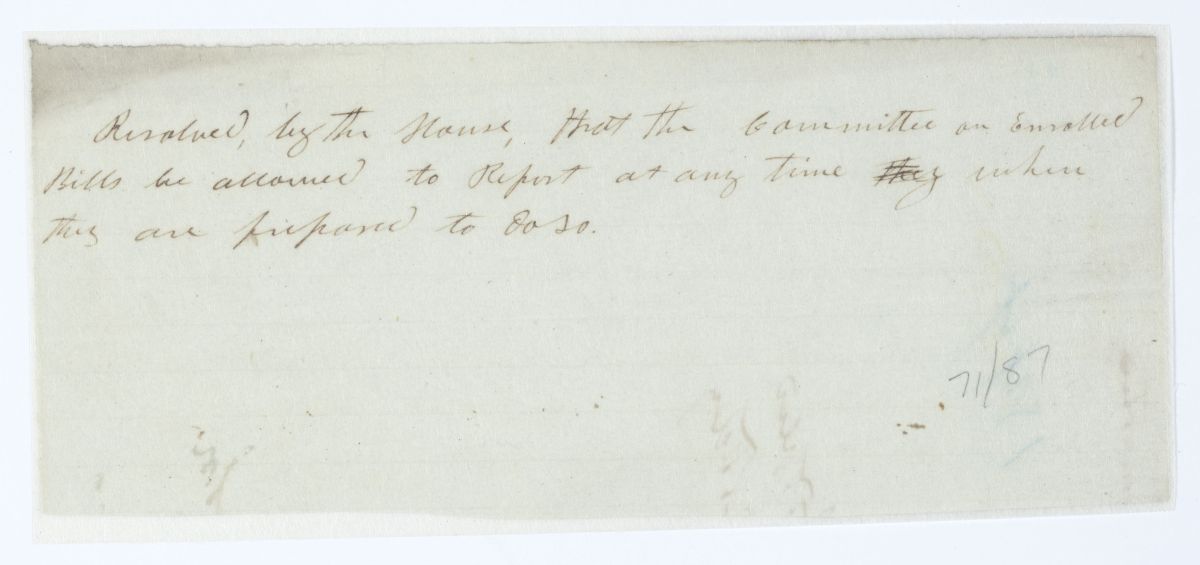 Resolved, by the House, that the Committee on Enrolled
Bills be allowed to Report at any time they when
they are prepared to do so.
71/87